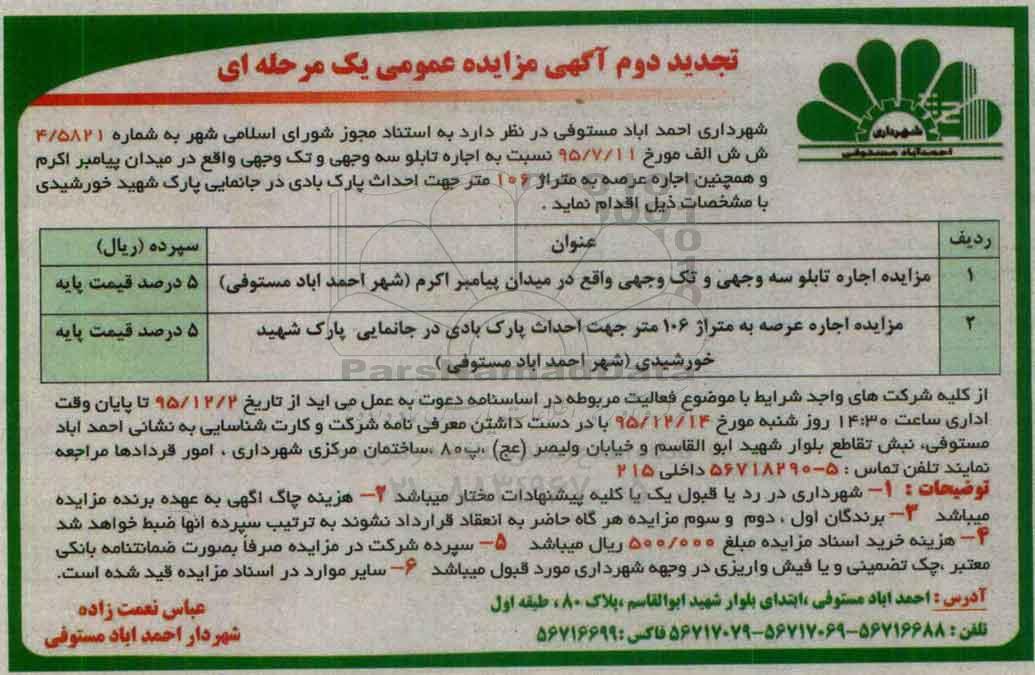 تجدید دوم آگهی مزایده عمومی یک مرحله ای
شهرداری
احمدآباد مستوفی
شهرداری احمد اباد مستوفی در نظر دارد به استناد مجوز شورای اسلامی شهر به شماره ۴/۵۸۲۱
ش ش الف مورخ ۹۵/۷/۱۱ نسبت به اجاره تابلو سه وجهی و تک وجهی واقع در میدان پیامبر اکرم
و همچنین اجاره عرصه به متراژ ۱۰۶ متر جهت احداث پارک بادی در جانمایی پارک شهید خورشیدی
با مشخصات ذیل اقدام نماید .
ردیف عنوان سپرده (ریال)
۱ مزایده اجاره تابلو سه وجهی و تک وجهی واقع در میدان پیامبر اکرم (شهر احمد اباد مستوفی) ۵ درصد قیمت پایه
۲ مزایده اجاره عرصه به متراژ ۱۰۶ متر جهت احداث پارک بادی در جانمایی پارک شهید ۵ درصد قیمت پایه
خورشیدی (شهر احمد اباد مستوفی )
ParsNamadData
از کلیه شرکت های واجد شرایط با موضوع فعالیت مربوطه در اساسنامه دعوت به عمل می اید از تاریخ ۹۵/۱۲/۲ تا پایان وقت
اداری ساعت ۱۴:۳۰ روز شنبه مورخ ۹۵/۱۲/۱۴ با در دست داشتن معرفی نامه شرکت و کارت شناسایی به نشانی احمد اباد
مستوفی، نبش تقاطع بلوار شهید ابو القاسم و خیابان ولیعصر (عج) ،پ۸۰ ،ساختمان مرکزی شهرداری ، امور قردادها مراجعه
نمایند تلفن تماس : ۵-۵۶۷۱۸۲۹۰ داخلی ۲۱۵
توضیحات : ۱- شهرداری در رد یا قبول یک یا کلیه پیشنهادات مختار میباشد ۲- هزینه چاگ اگهی به عهده برنده مزایده
میباشد ۳- برندگان اول ، دوم و سوم مزایده هر گاه حاضر به انعقاد قرارداد نشوند به ترتیب سپرده انها ضبط خواهد شد
۴- هزینه خرید اسناد مزایده مبلغ ۵۰۰/۰۰۰ ریال میباشد ۵- سپرده شرکت در مزایده صرفاً بصورت ضمانتنامه بانکی
معتبر ،چک تضمینی و یا فیش واریزی در وجهه شهرداری مورد قبول میباشد ۶- سایر موارد در اسناد مزایده قید شده است.
آدرس : احمد اباد مستوفی ،ابتدای بلوار شهید ابوالقاسم ،پلاک ۸۰ ، طبقه اول
تلفن : ۵۶۷۱۶۶۸۸-۵۶۷۱۷۰۶۹-۵۶۷۱۷۰۷۹ فاکس :۵۶۷۱۶۶۹۹
عباس نعمت زاده
شهردار احمد اباد مستوفی